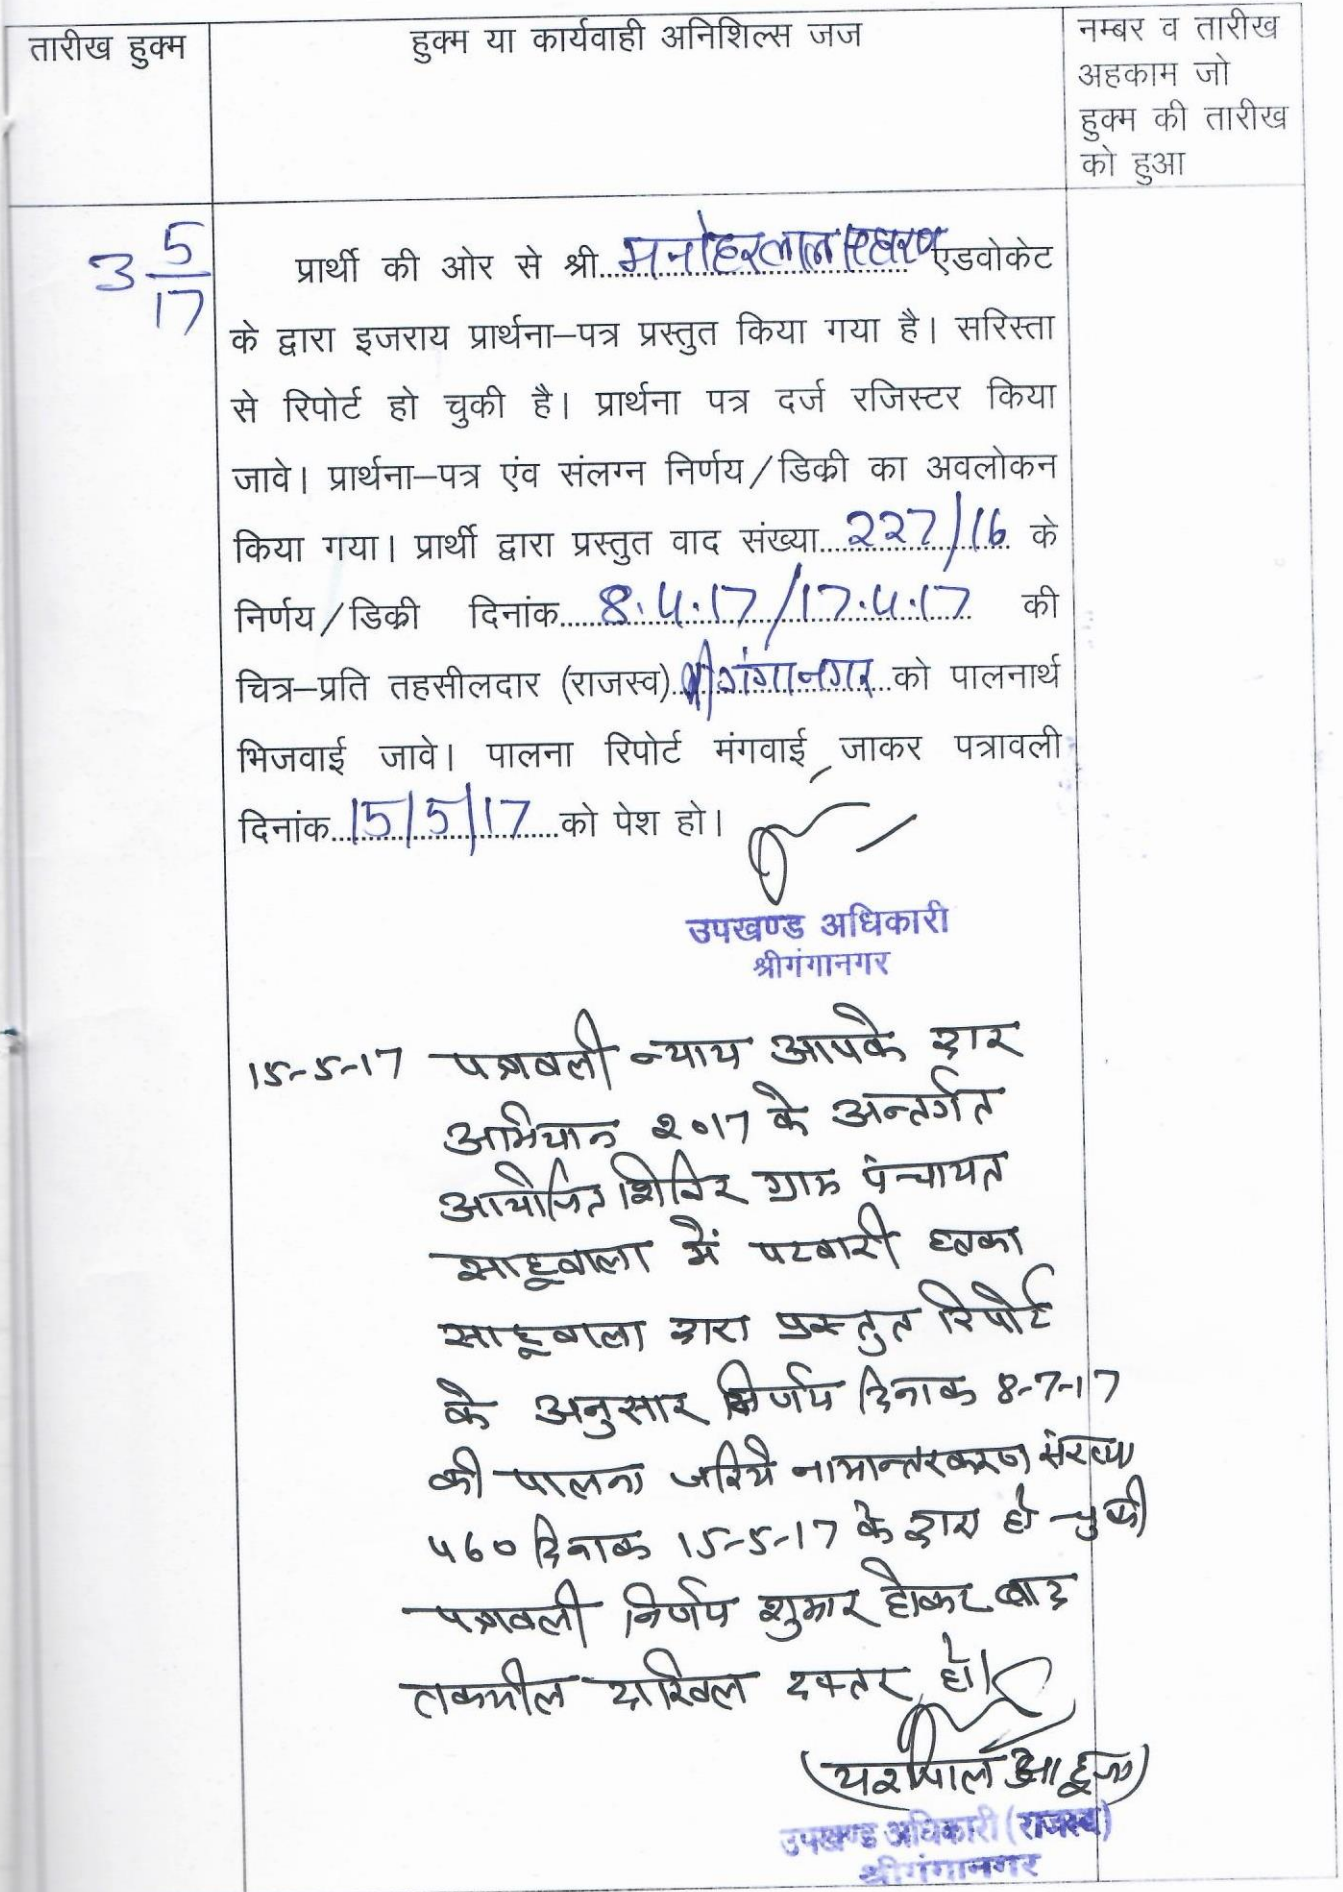 तारीख हुक्म
हुक्म या कार्यवाही अनिशिल्स जज
नम्बर व तारीख
अहकाम जो
हुक्म की तारीख
को हुआ
3 5/17
प्रार्थी की ओर से श्री मनोहरलाल सहारण एडवोकेट
के द्वारा इजराय प्रार्थना–पत्र प्रस्तुत किया गया है। सरिस्ता
से रिपोर्ट हो चुकी है। प्रार्थना पत्र दर्ज रजिस्टर किया
जावे। प्रार्थना–पत्र एंव संलग्न निर्णय/डिक्री का अवलोकन
किया गया। प्रार्थी द्वारा प्रस्तुत वाद संख्या 227/16 के
निर्णय/डिक्री दिनांक 8.4.17/17.4.17 की
चित्र–प्रति तहसीलदार (राजस्व) श्रीगंगानगर को पालनार्थ
भिजवाई जावे। पालना रिपोर्ट मंगवाई जाकर पत्रावली
दिनांक 15/5/17 को पेश हो।
उपखण्ड अधिकारी
श्रीगंगानगर
15-5-17 पत्रावली न्याय आपके द्वार
अभियान 2017 के अन्तर्गत
आयोजित शिविर ग्राम पंचायत
साहूवाला में पटवारी हल्का
साहूवाला द्वारा प्रस्तुत रिपोर्ट
के अनुसार निर्णय दिनाक 8-7-17
की पालना जरिये नामान्तरकरण संख्या
460 दिनाक 15-5-17 के द्वारा हो चुकी
पत्रावली निर्णय शुमार होकर बाद
तकमील दाखिल दफ्तर हो।
(यशपाल आहूजा)
उपखण्ड अधिकारी (राजस्व)
श्रीगंगानगर